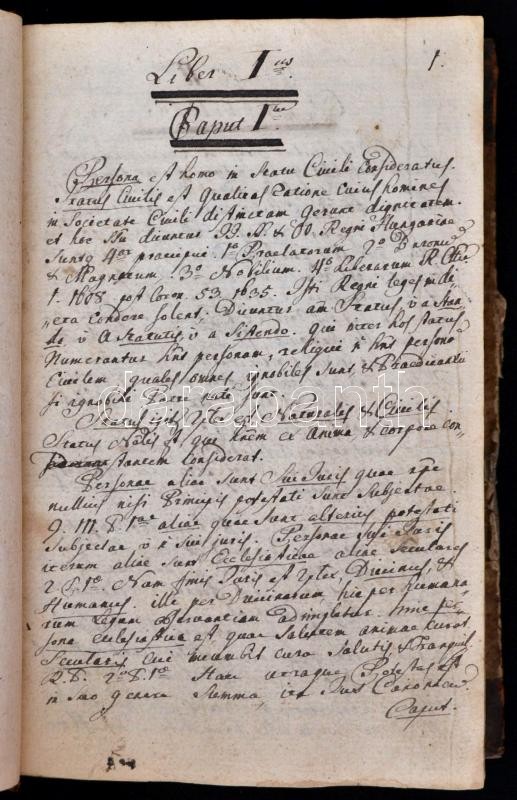 1.
Liber I us.
Caput I um
Persona est homo in Statu Civili Consideratus.
Status Civilis est Qualitas ratione cuius homines
in Societate Civili distinctam gerunt dignitatem.
et hoc situ dicuntur SS. & OO. Regni Hungariae
Suntq 4or praecipui. 1o Praelatorum 2o Baronum
& Magnatum 3o Nobilium. 4o Liberarum R. Cittm
1. 1608. post Coron. 53. 1635. Isti Regni leges in di-
eta condere solent. Dicuntur am Status v a Stan-
do, v a Statutis, v a Sistendo. qui inter hos status
Numerantur hnt personam, reliqui n hnt personam
Civilem quales omnes ignobiles sunt, & Praedicantium
si ignobili Patre nati sunt.
Status iste Naturalis & Civilis
Status Nalis est, qui hnem ex anima & corpore con-
stantem considerat.
Personae aliae sunt Sui Juris quae
nullius nisi Principis potestati sunt Subjectae.
9. III. & 1ae aliae quae sunt alterius potestati
Subjectae v n sui juris. Personae Juris
iterum aliae sunt Ecclesiasticae aliae Seculares
2. 1ae. Nam Juris est Divinum, &
Humanum. ille per Divinarum hic per humana-
rum Legum observantiam adimpletur. hinc per-
sona ecclesiastica est quae Salutem animae curat.
Secularis cui incumbit cura Salutis & Tranquil.
R. P. 2ae & 1ae Haec utraque Potestas est
in suo genere Summa, Jure Canonico
Caput.
darabanth